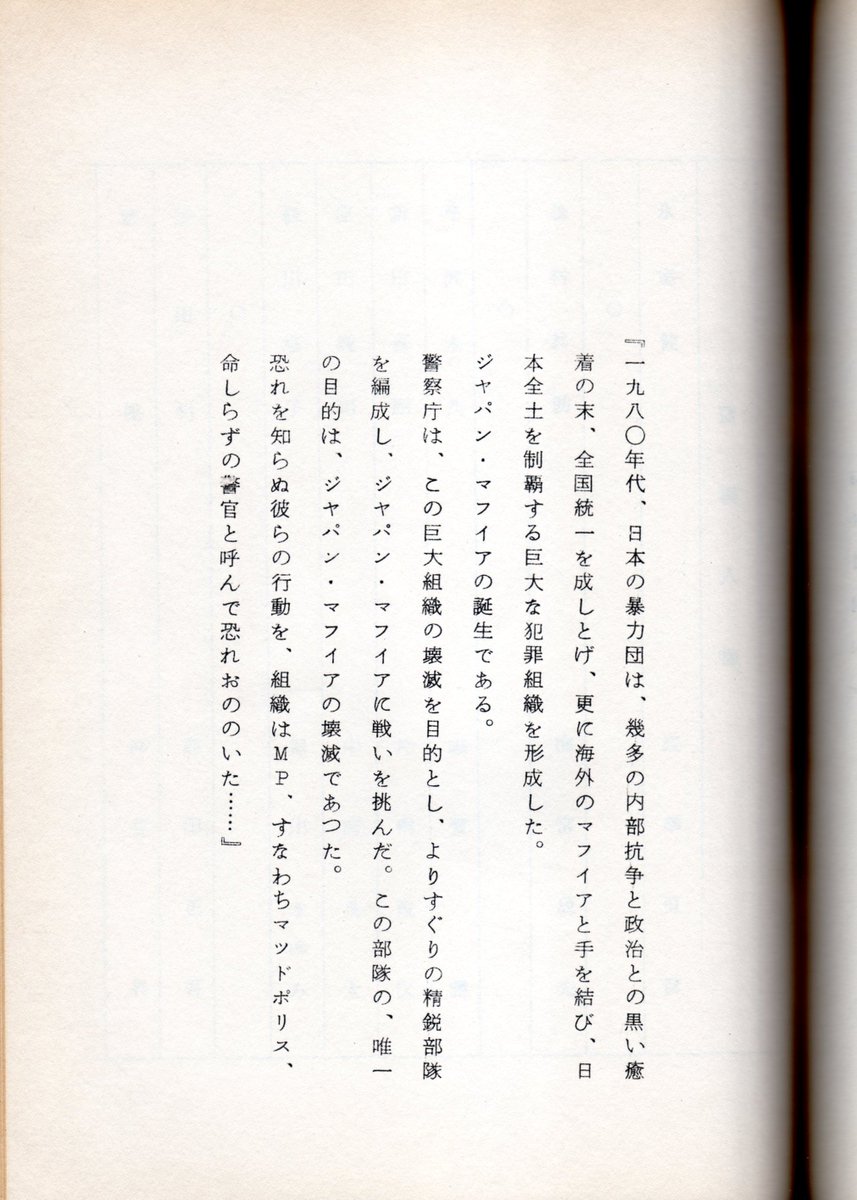 『一九八〇年代、日本の暴力団は、幾多の内部抗争と政治との黒い癒
着の末、全国統一を成しとげ、更に海外のマフイアと手を結び、日
本全土を制覇する巨大な犯罪組織を形成した。
ジヤパン・マフイアの誕生である。
警察庁は、この巨大組織の壊滅を目的とし、よりすぐりの精鋭部隊
を編成し、ジヤパン・マフイアに戦いを挑んだ。この部隊の、唯一
の目的は、ジヤパン・マフイアの壊滅であつた。
恐れを知らぬ彼らの行動を、組織はＭＰ、すなわちマツドポリス、
命しらずの警官と呼んで恐れおののいた……』